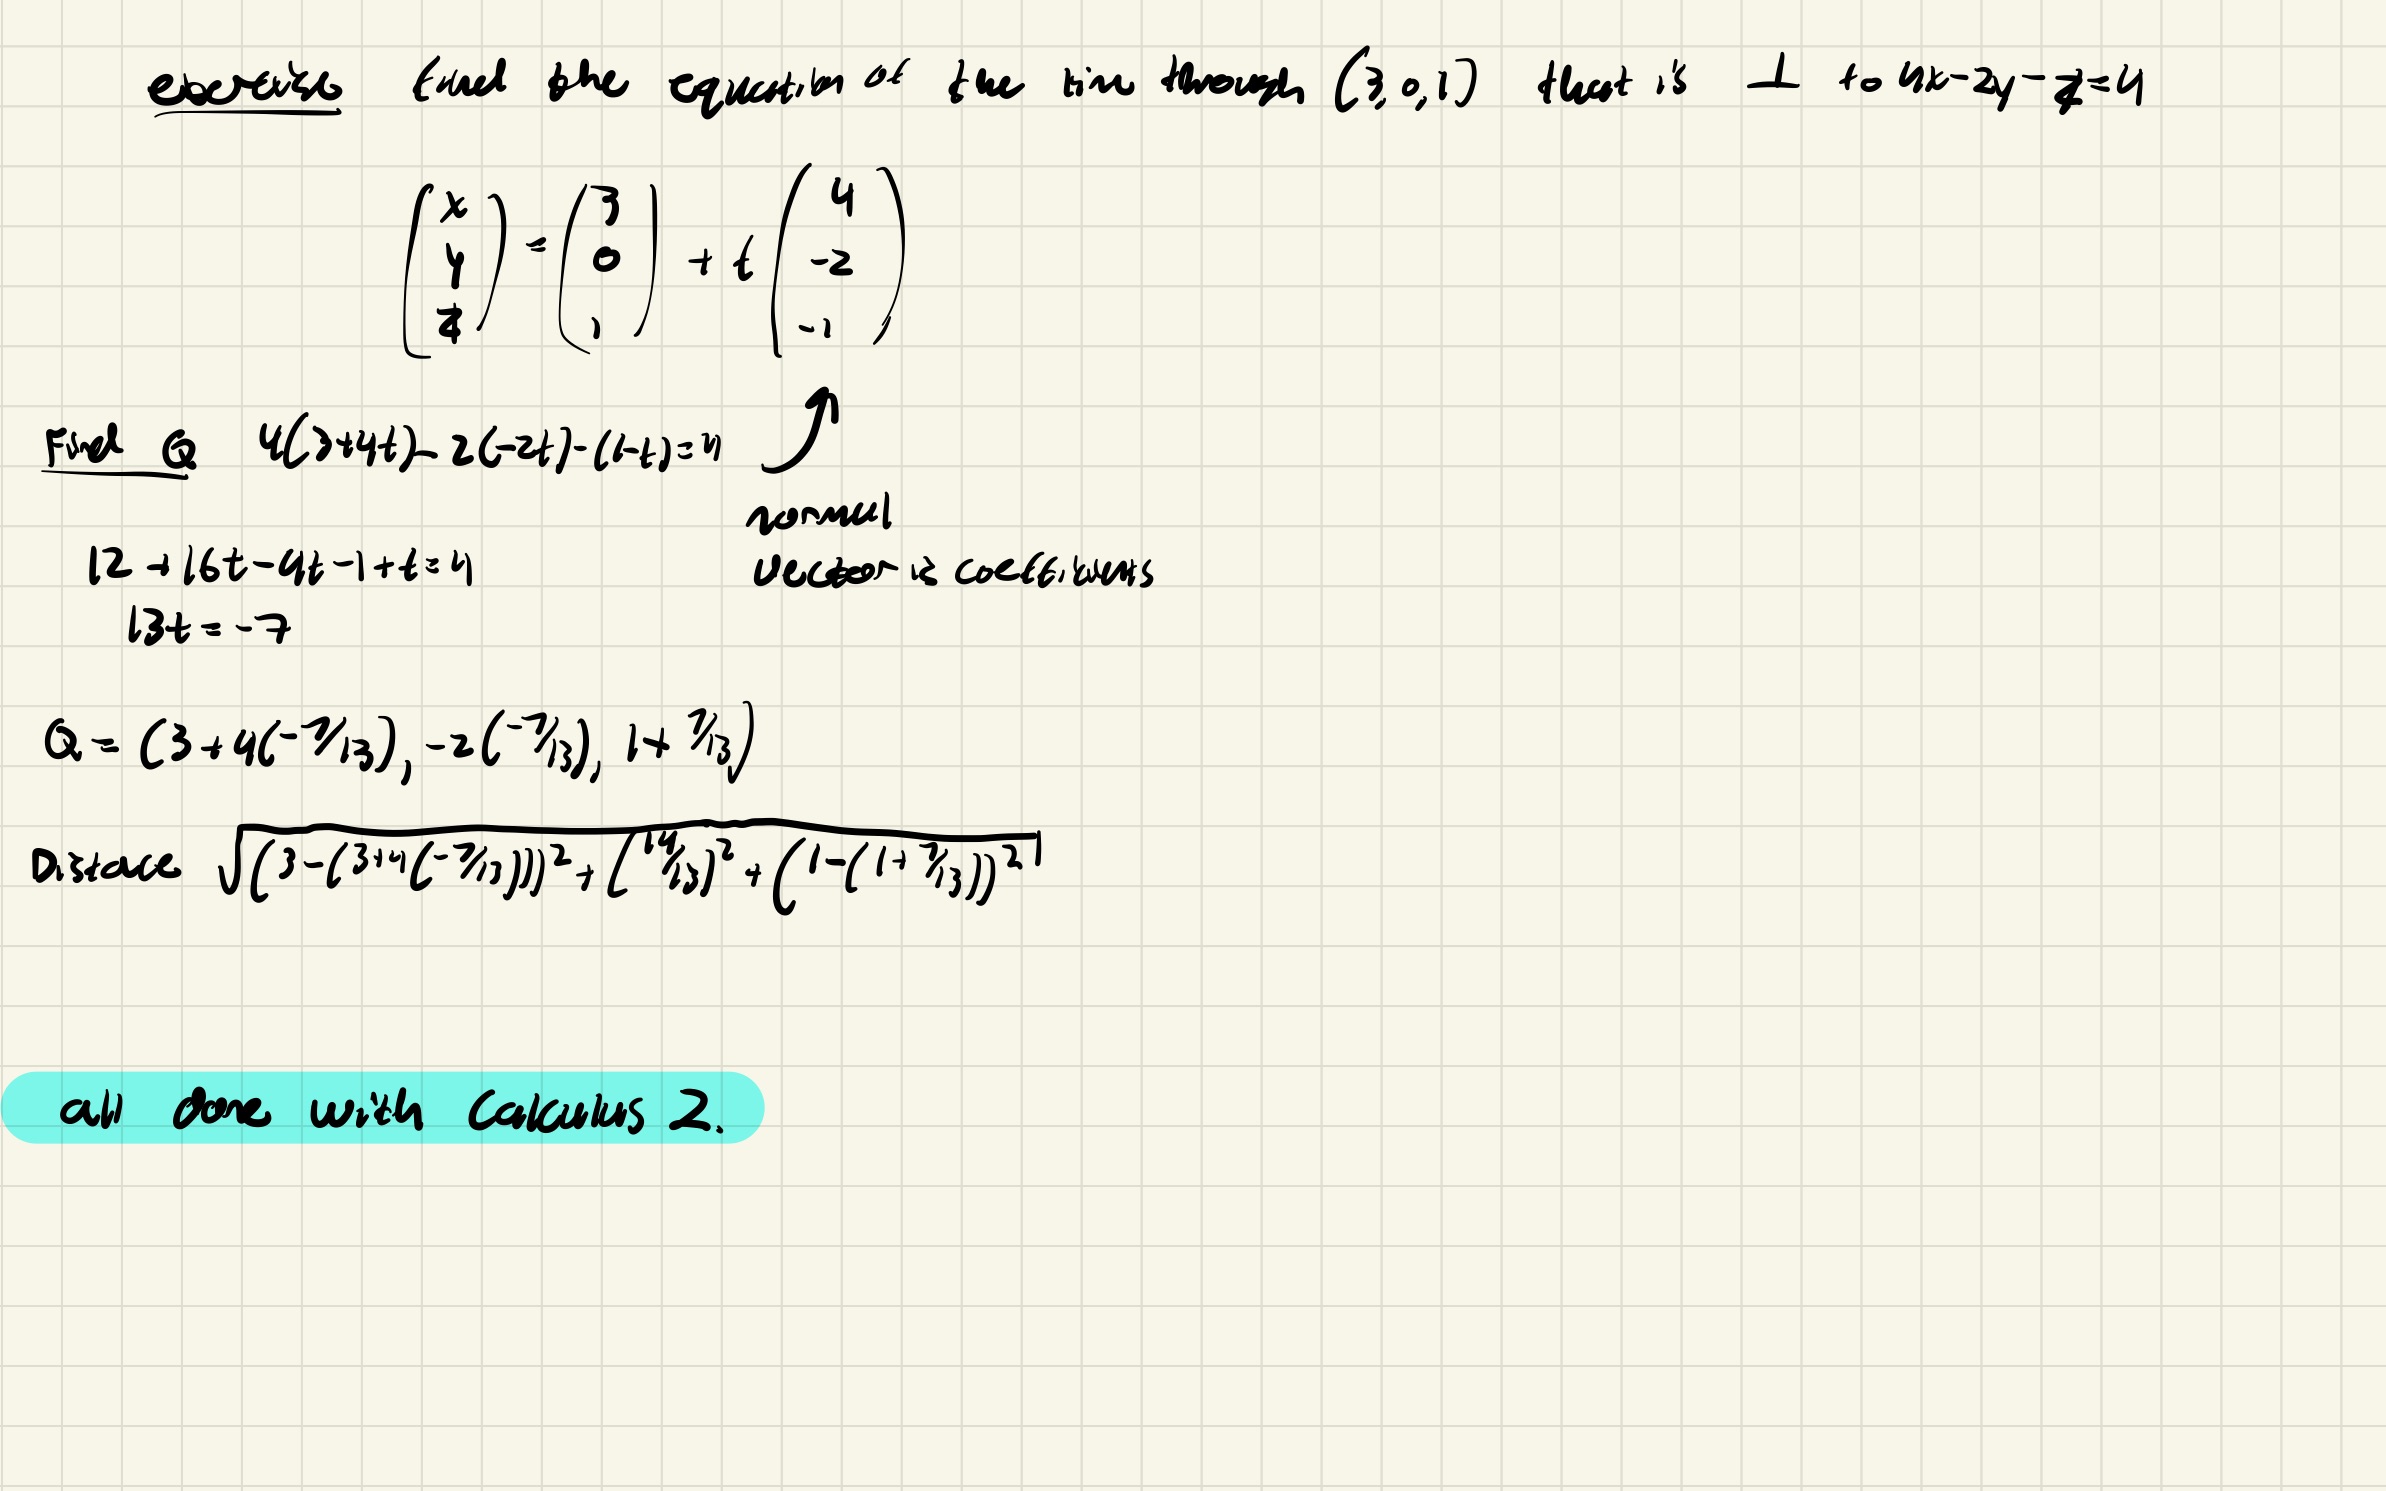 exercise find the equation of the line through (3, 0, 1) that is ⊥ to 4x-2y-z=4
(x y z) = (3 0 1) + t (4 -2 -1)
Find Q 4(3+4t)-2(-2t)-(1-t)=4
normal
vector is coefficients
12 + 16t - 4t - 1 + t = 4
13t = -7
Q = (3+4(-7/13), -2(-7/13), 1+7/13)
Distance √((3-(3+4(-7/13)))² + (14/13)² + (1-(1+7/13))²)
all done with Calculus 2.